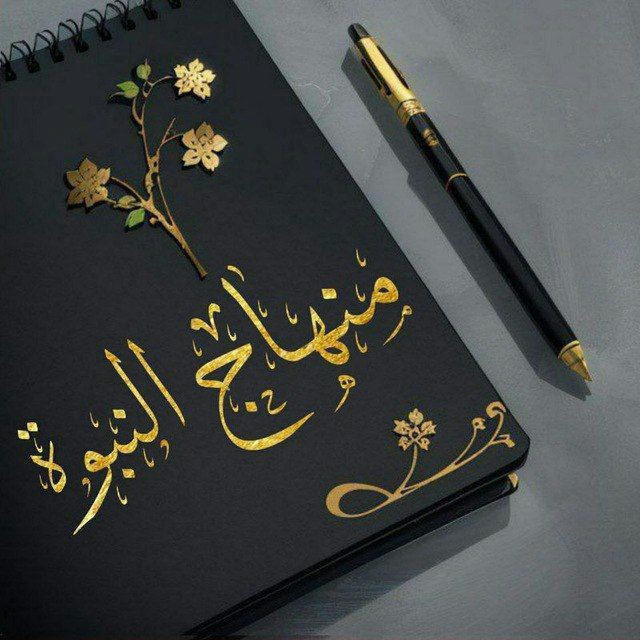 منهاج النبوة